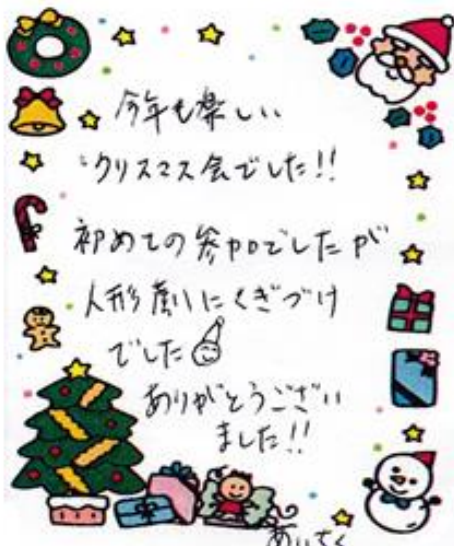 今年も楽しい
クリスマス会でした!!
初めての参加でしたが
人形劇にくぎづけ
でした
ありがとうござい
ました!!